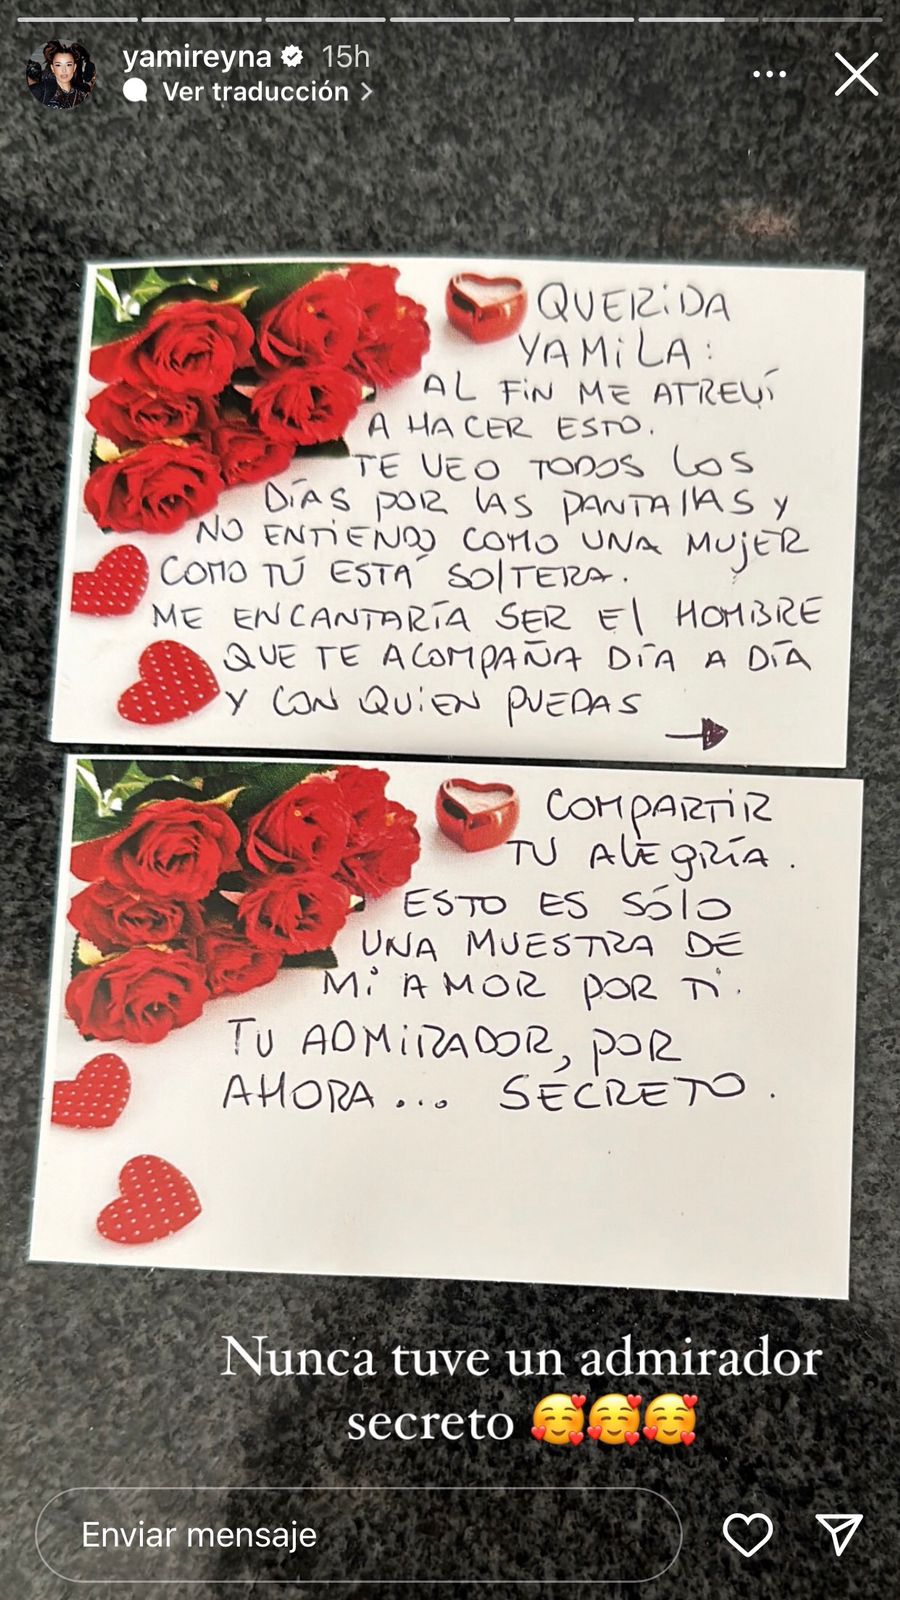 yamireyna 15h
Ver traducción >
QUERIDA
YAMILA:
AL FIN ME ATREVÍ
A HACER ESTO.
TE VEO TODOS LOS
DÍAS POR LAS PANTALLAS Y
NO ENTIENDO COMO UNA MUJER
COMO TÚ ESTÁ SOLTERA.
ME ENCANTARÍA SER EL HOMBRE
QUE TE ACOMPAÑA DÍA A DÍA
Y CON QUIEN PUEDAS
COMPARTIR
TU ALEGRÍA.
ESTO ES SÓLO
UNA MUESTRA DE
MI AMOR POR TI.
TU ADMIRADOR, POR
AHORA... SECRETO.
Nunca tuve un admirador
secreto 🥰🥰🥰
Enviar mensaje